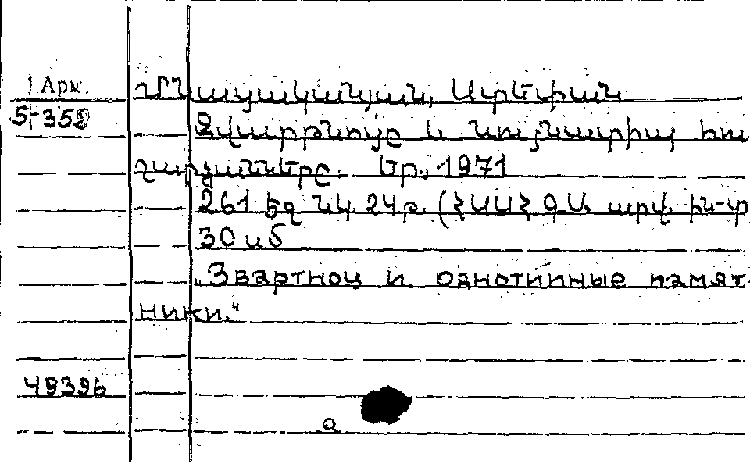 Арм.
5-352
Մնացականյան, Ստեփան
Զվարթնոցը և նույնատիպ հու
շարձանները. Եր., 1971
261 էջ նկ. 24թ. (ՀՍՍՀ ԳԱ արվ. ին-տ
30 սմ
„Звартноц и однотипные памят-
ники."
4939ь